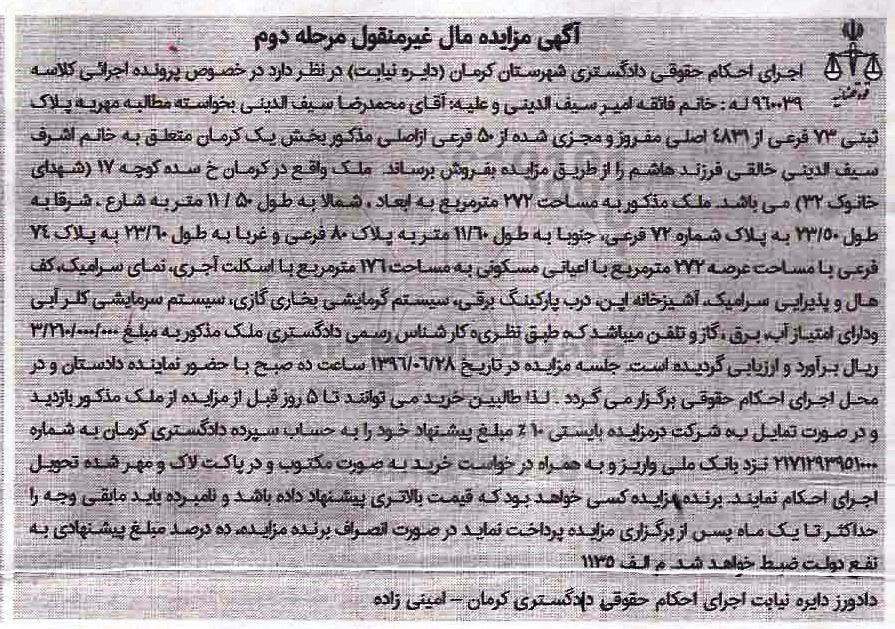 آگهی مزایده مال غیرمنقول مرحله دوم
اجرای احکام حقوقی دادگستری شهرستان کرمان (دایره نیابت) در نظر دارد در خصوص پرونده اجرائی کلاسه
۹۶۰۰۳۹ له : خانم فائقه امیر سیف الدینی و علیه: آقای محمدرضا سیف الدینی بخواسته مطالبه مهریه پلاک
ثبتی ۷۳ فرعی از ۴۸۳۱ اصلی مفروز و مجزی شده از ۵۰ فرعی ازاصلی مذکور بخش یک کرمان متعلق به خانم اشرف
سیف الدینی خالقی فرزند هاشم را از طریق مزایده بفروش برساند. ملک واقع در کرمان خ سده کوچه ۱۷ (شهدای
خانوک ۳۲) می باشد. ملک مذکور به مساحت ۲۷۲ مترمربع به ابعاد ، شمالا به طول ۵۰ / ۱۱ متر به شارع ، شرقا به
طول ۲۳/۵۰ به پلاک شماره ۷۲ فرعی، جنوبا به طول ۱۱/۶۰ متر به پلاک ۸۰ فرعی و غربا به طول ۲۳/۶۰ به پلاک ۷۴
فرعی با مساحت عرصه ۲۷۲ مترمربع با اعیانی مسکونی به مساحت ۱۷۶ مترمربع با اسکلت آجری، نمای سرامیک، کف
هال و پذیرایی سرامیک، آشپزخانه اپن، درب پارکینگ برقی، سیستم گرمایشی بخاری گازی، سیستم سرمایشی کلر آبی
ودارای امتیاز آب، برق ، گاز و تلفن میباشد که طبق نظریه کارشناس رسمی دادگستری ملک مذکور به مبلغ ۳/۲۶۰/۰۰۰/۰۰۰
ریال برآورد و ارزیابی گردیده است. جلسه مزایده در تاریخ ۱۳۹۶/۰۶/۲۸ ساعت ده صبح با حضور نماینده دادستان و در
محل اجرای احکام حقوقی برگزار می گردد . لذا طالبین خرید می توانند تا ۵ روز قبل از مزایده از ملک مذکور بازدید
و در صورت تمایل به شرکت درمزایده بایستی ۱۰ ٪ مبلغ پیشنهاد خود را به حساب سپرده دادگستری کرمان به شماره
۲۱۷۱۲۹۳۹۵۱۰۰۰ نزد بانک ملی واریز و به همراه در خواست خرید به صورت مکتوب و در پاکت لاک و مهر شده تحویل
اجرای احکام نمایند. برنده مزایده کسی خواهد بود که قیمت بالاتری پیشنهاد داده باشد و نامبرده باید مابقی وجه را
حداکثر تا یک ماه پس از برگزاری مزایده پرداخت نماید در صورت انصراف برنده مزایده، ده درصد مبلغ پیشنهادی به
نفع دولت ضبط خواهد شد. م الف ۱۱۳۵
دادورز دایره نیابت اجرای احکام حقوقی دادگستری کرمان – امینی زاده